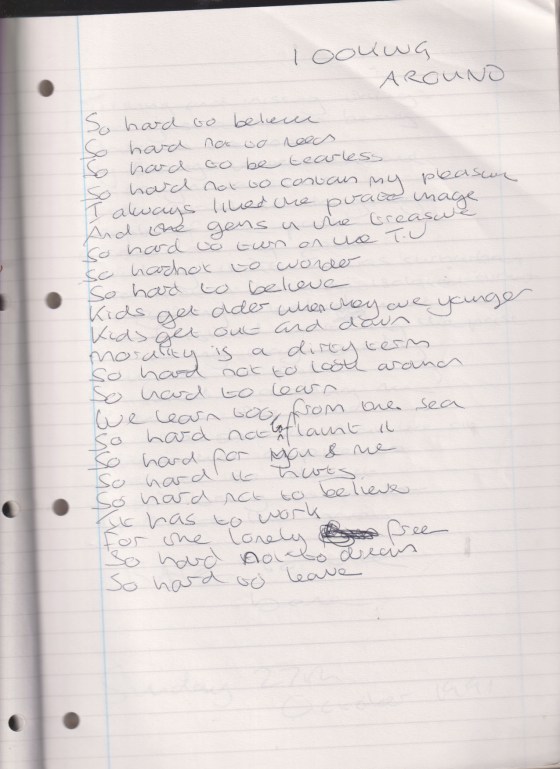 LOOKING
AROUND
So hard to believe
So hard not to need
So hard to be tearless
So hard not to contain my pleasure
I always liked the pirate image
And the gems in the treasure
So hard to turn on the T.V
So hard not to wonder
So hard to believe
Kids get older when they are younger
Kids get out and drown
Morality is a dirty term
So hard not to look around
So hard to learn
We learn too from the sea
So hard not to flaunt it
So hard for you & me
So hard it hurts
So hard not to believe
It has to work
For the lonely free
So hard not to dream
So hard to leave
October 1991